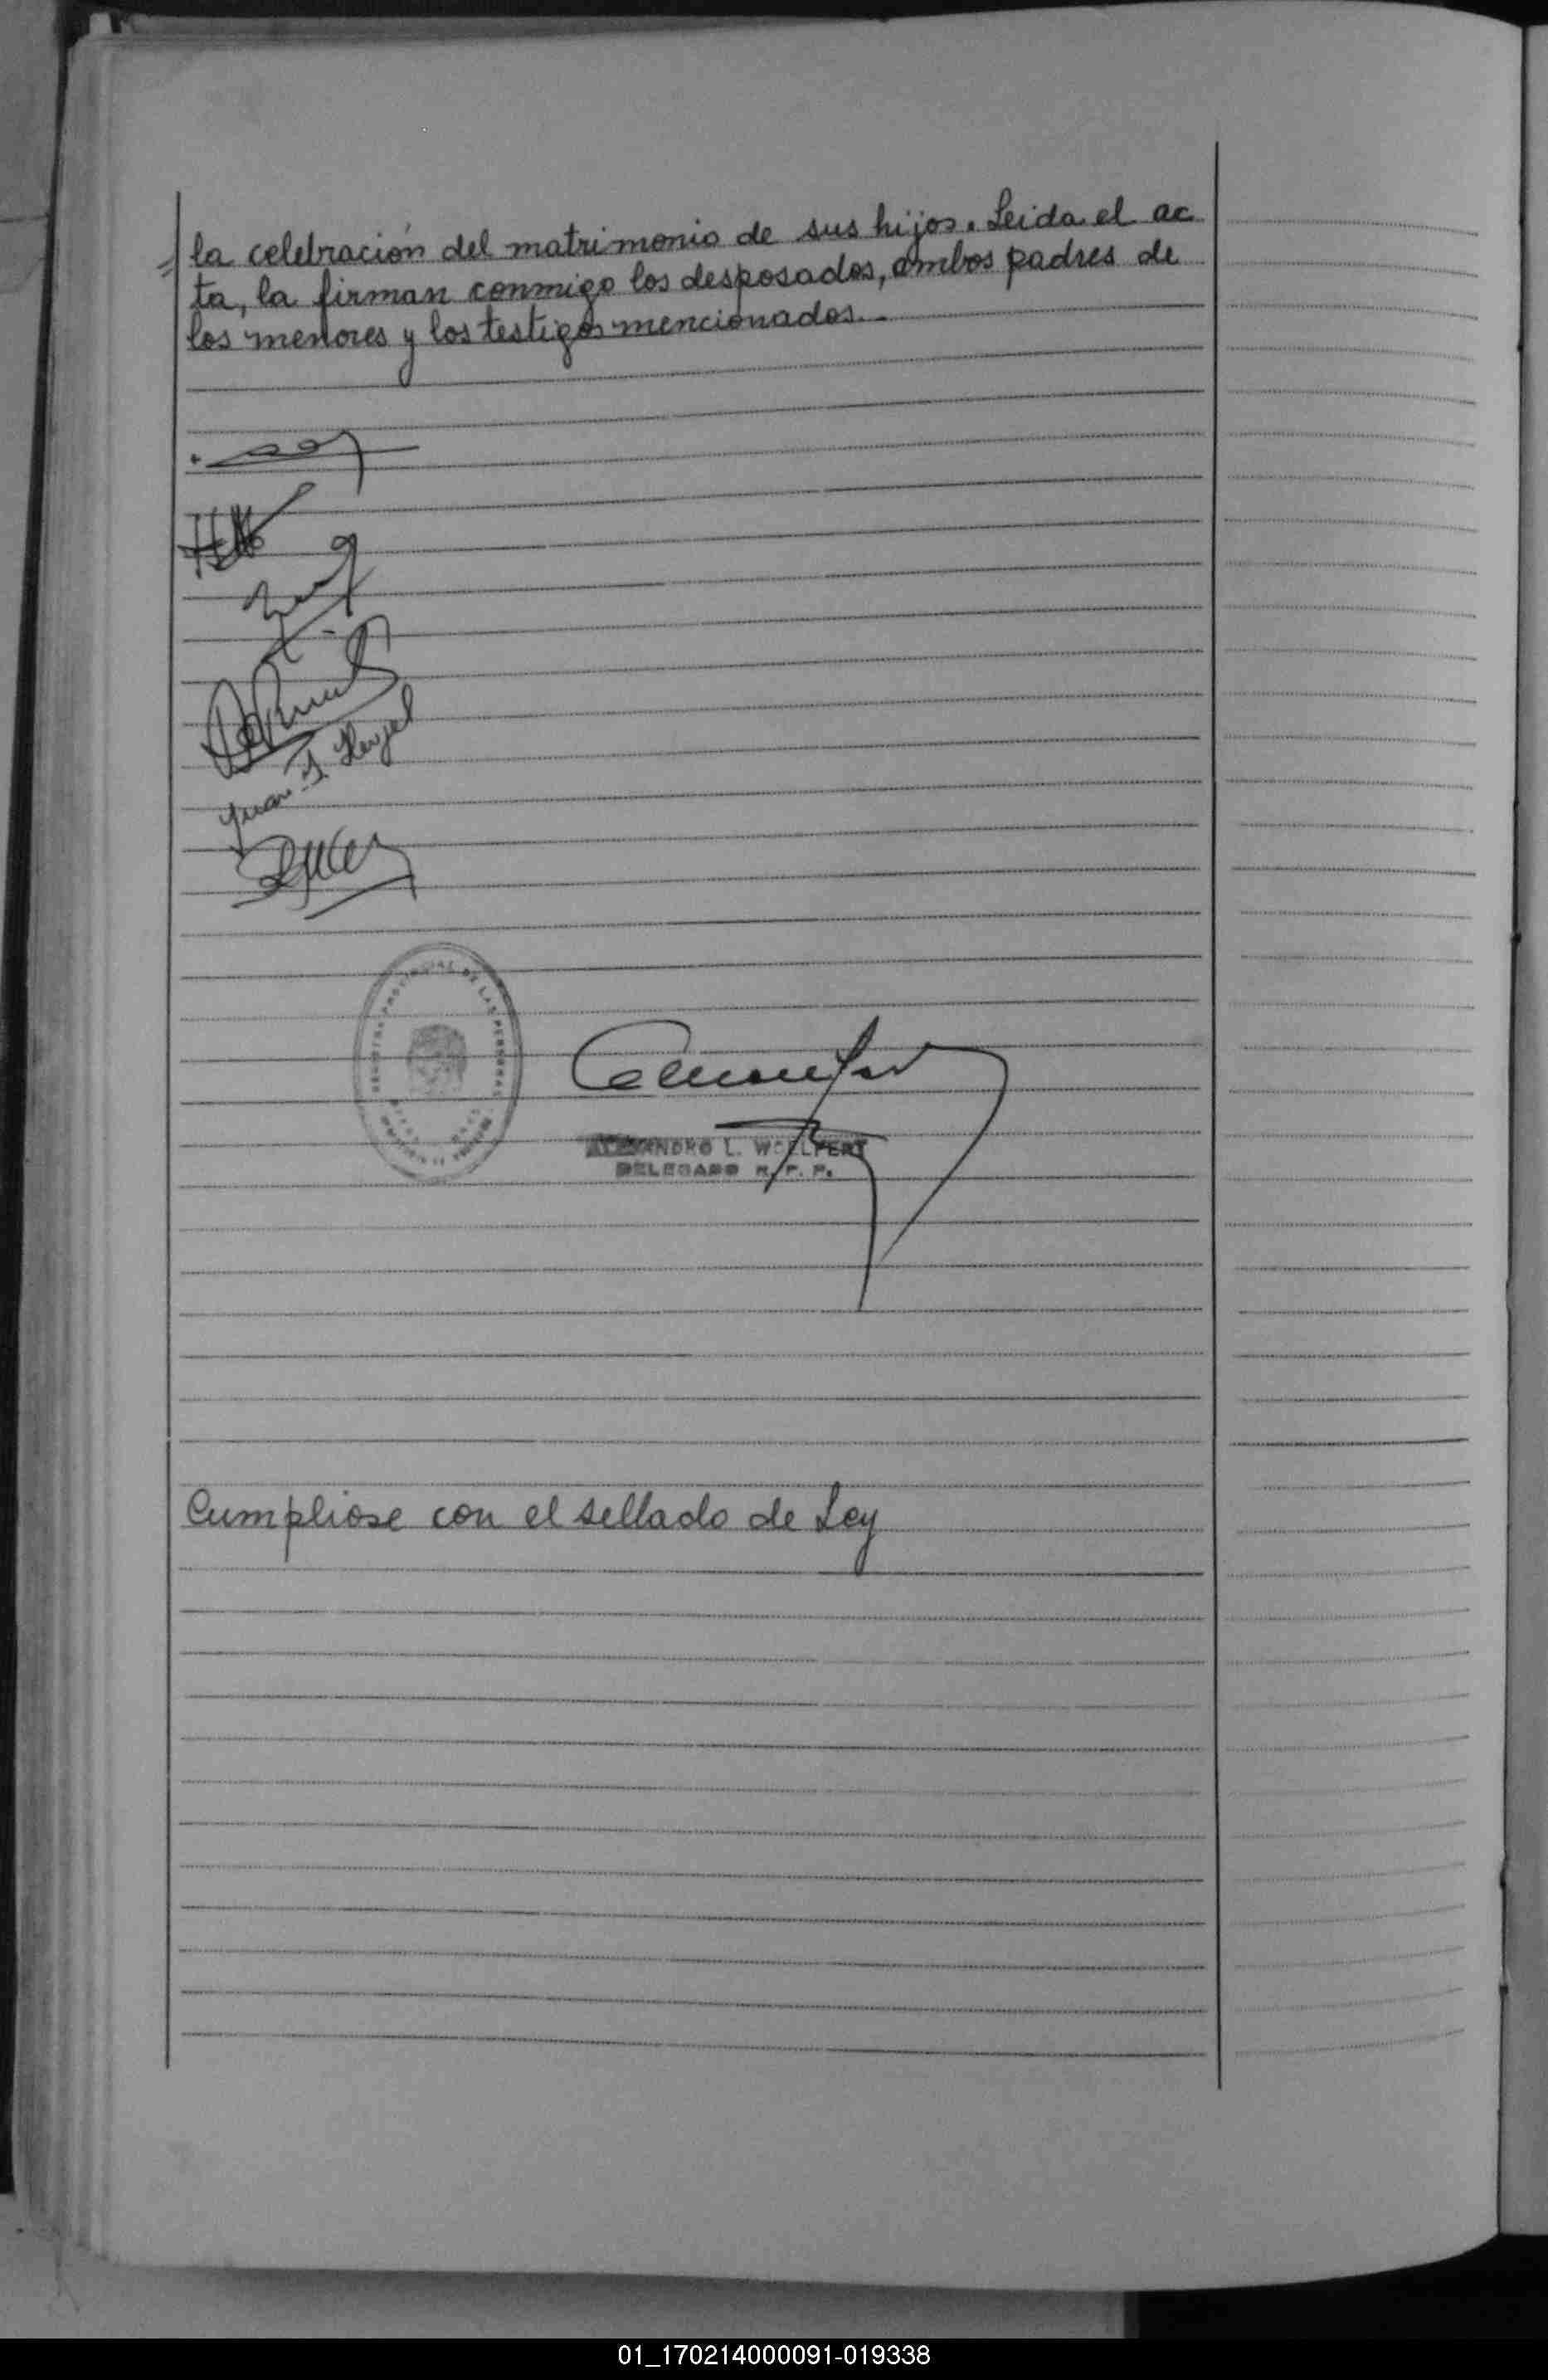 la celebración del matrimonio de sus hijos. Leida el ac
ta, la firman conmigo los desposados, ambos padres de
los menores y los testigos mencionados.-
Juan
REGISTRO PROVINCIAL DE LAS PERSONAS
ANDRO L. WOELFERT
DELEGADO R. P. P.
Cumpliose con el sellado de Ley
01_170214000091-019338